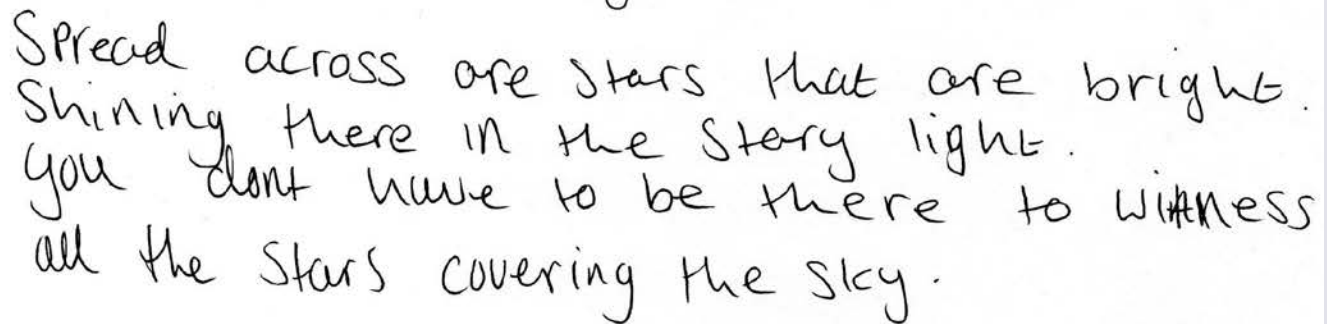 Spread across are stars that are bright.
Shining there in the Stary light.
you dont have to be there to witness
all the Stars covering the sky.